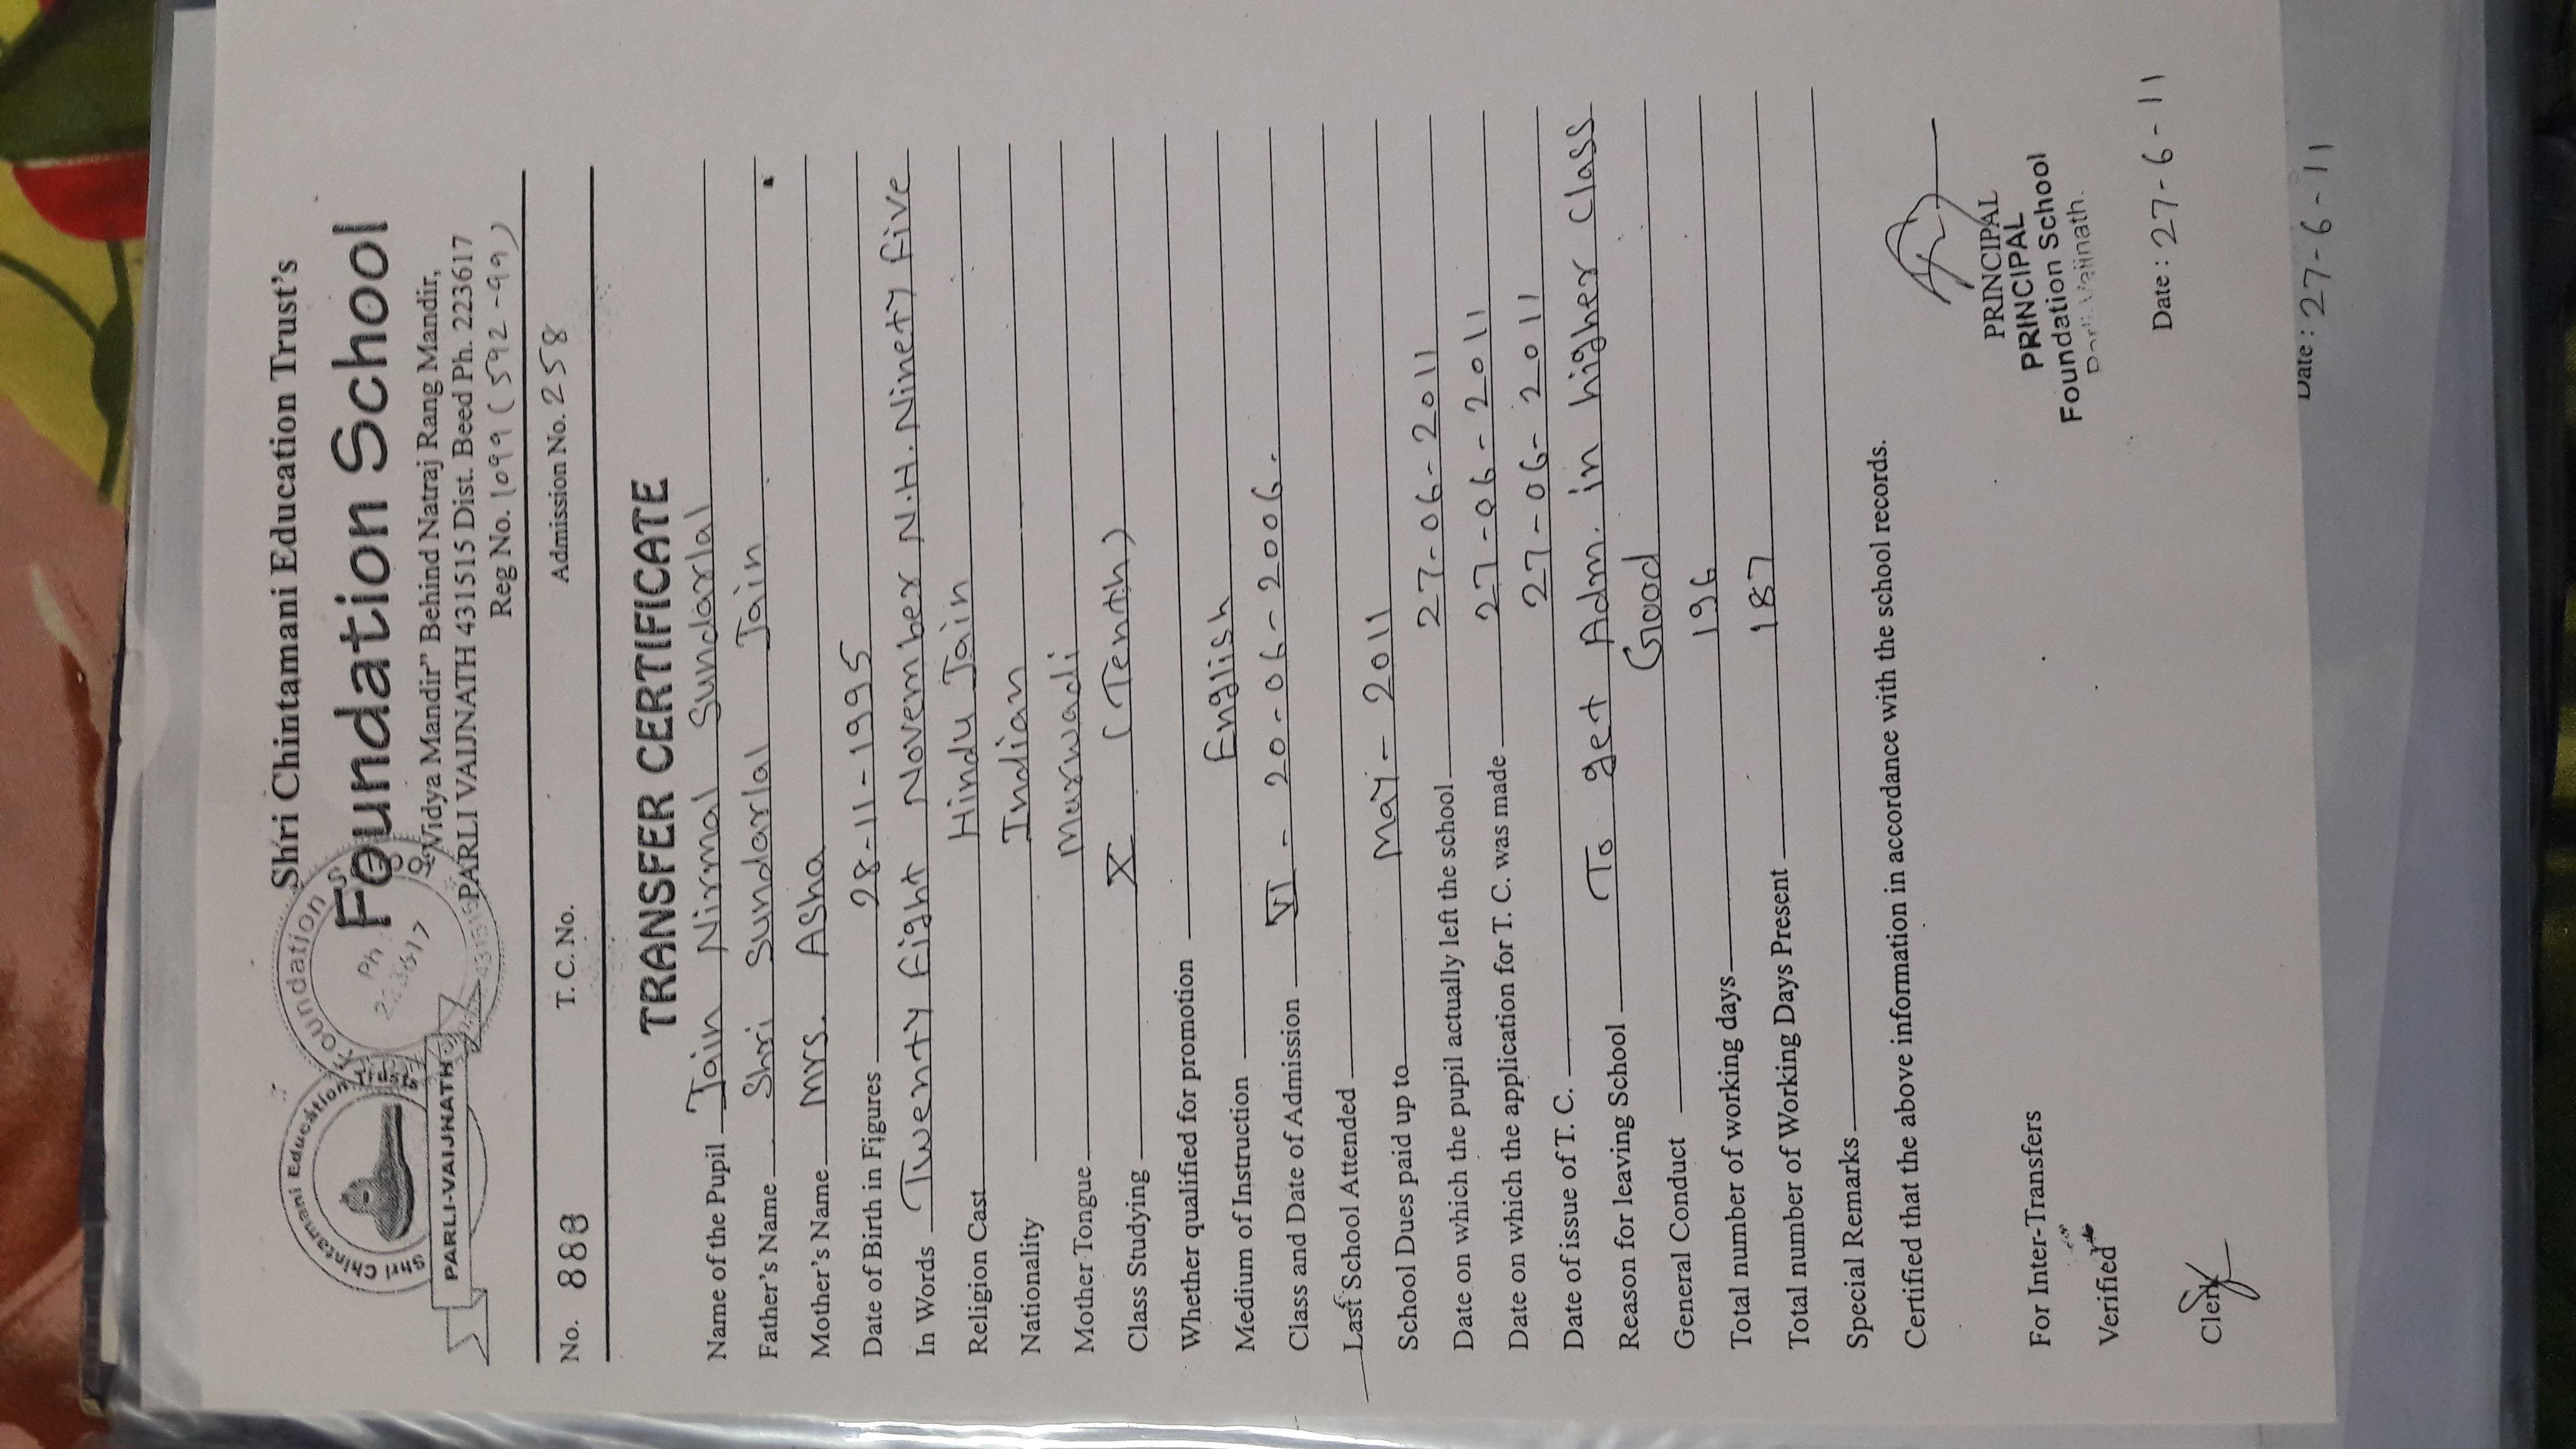 Shri Chintamani Education Trust's
Foundation School
"Vidya Mandir" Behind Natraj Rang Mandir,
PARLI VAIJNATH 431515 Dist. Beed Ph. 223617
Reg No. 1099 (592-99)
Shri Chintamani Education Trust
PARLI-VAIJNATH
Foundation
Ph.
No. 883 T. C. No. Admission No. 258
TRANSFER CERTIFICATE
Name of the Pupil Jain Nirmal Sundarlal
Father's Name Shri Sundarlal Jain
Mother's Name Mrs. Asha
Date of Birth in Figures 28-11-1995
In Words Twenty Eight November N.H. Ninety Five
Religion Cast Hindu Jain
Nationality Indian
Mother Tongue Marwadi
Class Studying X (Tenth)
Whether qualified for promotion
Medium of Instruction English
Class and Date of Admission VI - 20-06-2006.
Last School Attended
School Dues paid up to May - 2011
Date on which the pupil actually left the school 27-06-2011
Date on which the application for T. C. was made 27-06-2011
Date of issue of T. C. 27-06-2011
Reason for leaving School To get Adm. in higher Class
General Conduct Good
Total number of working days 196
Total number of Working Days Present 187
Special Remarks
Certified that the above information in accordance with the school records.
PRINCIPAL
PRINCIPAL
Foundation School
Parli-Vaijnath.
For Inter-Transfers
Verified
Clerk
Date : 27-6-11
Date : 27-6-11